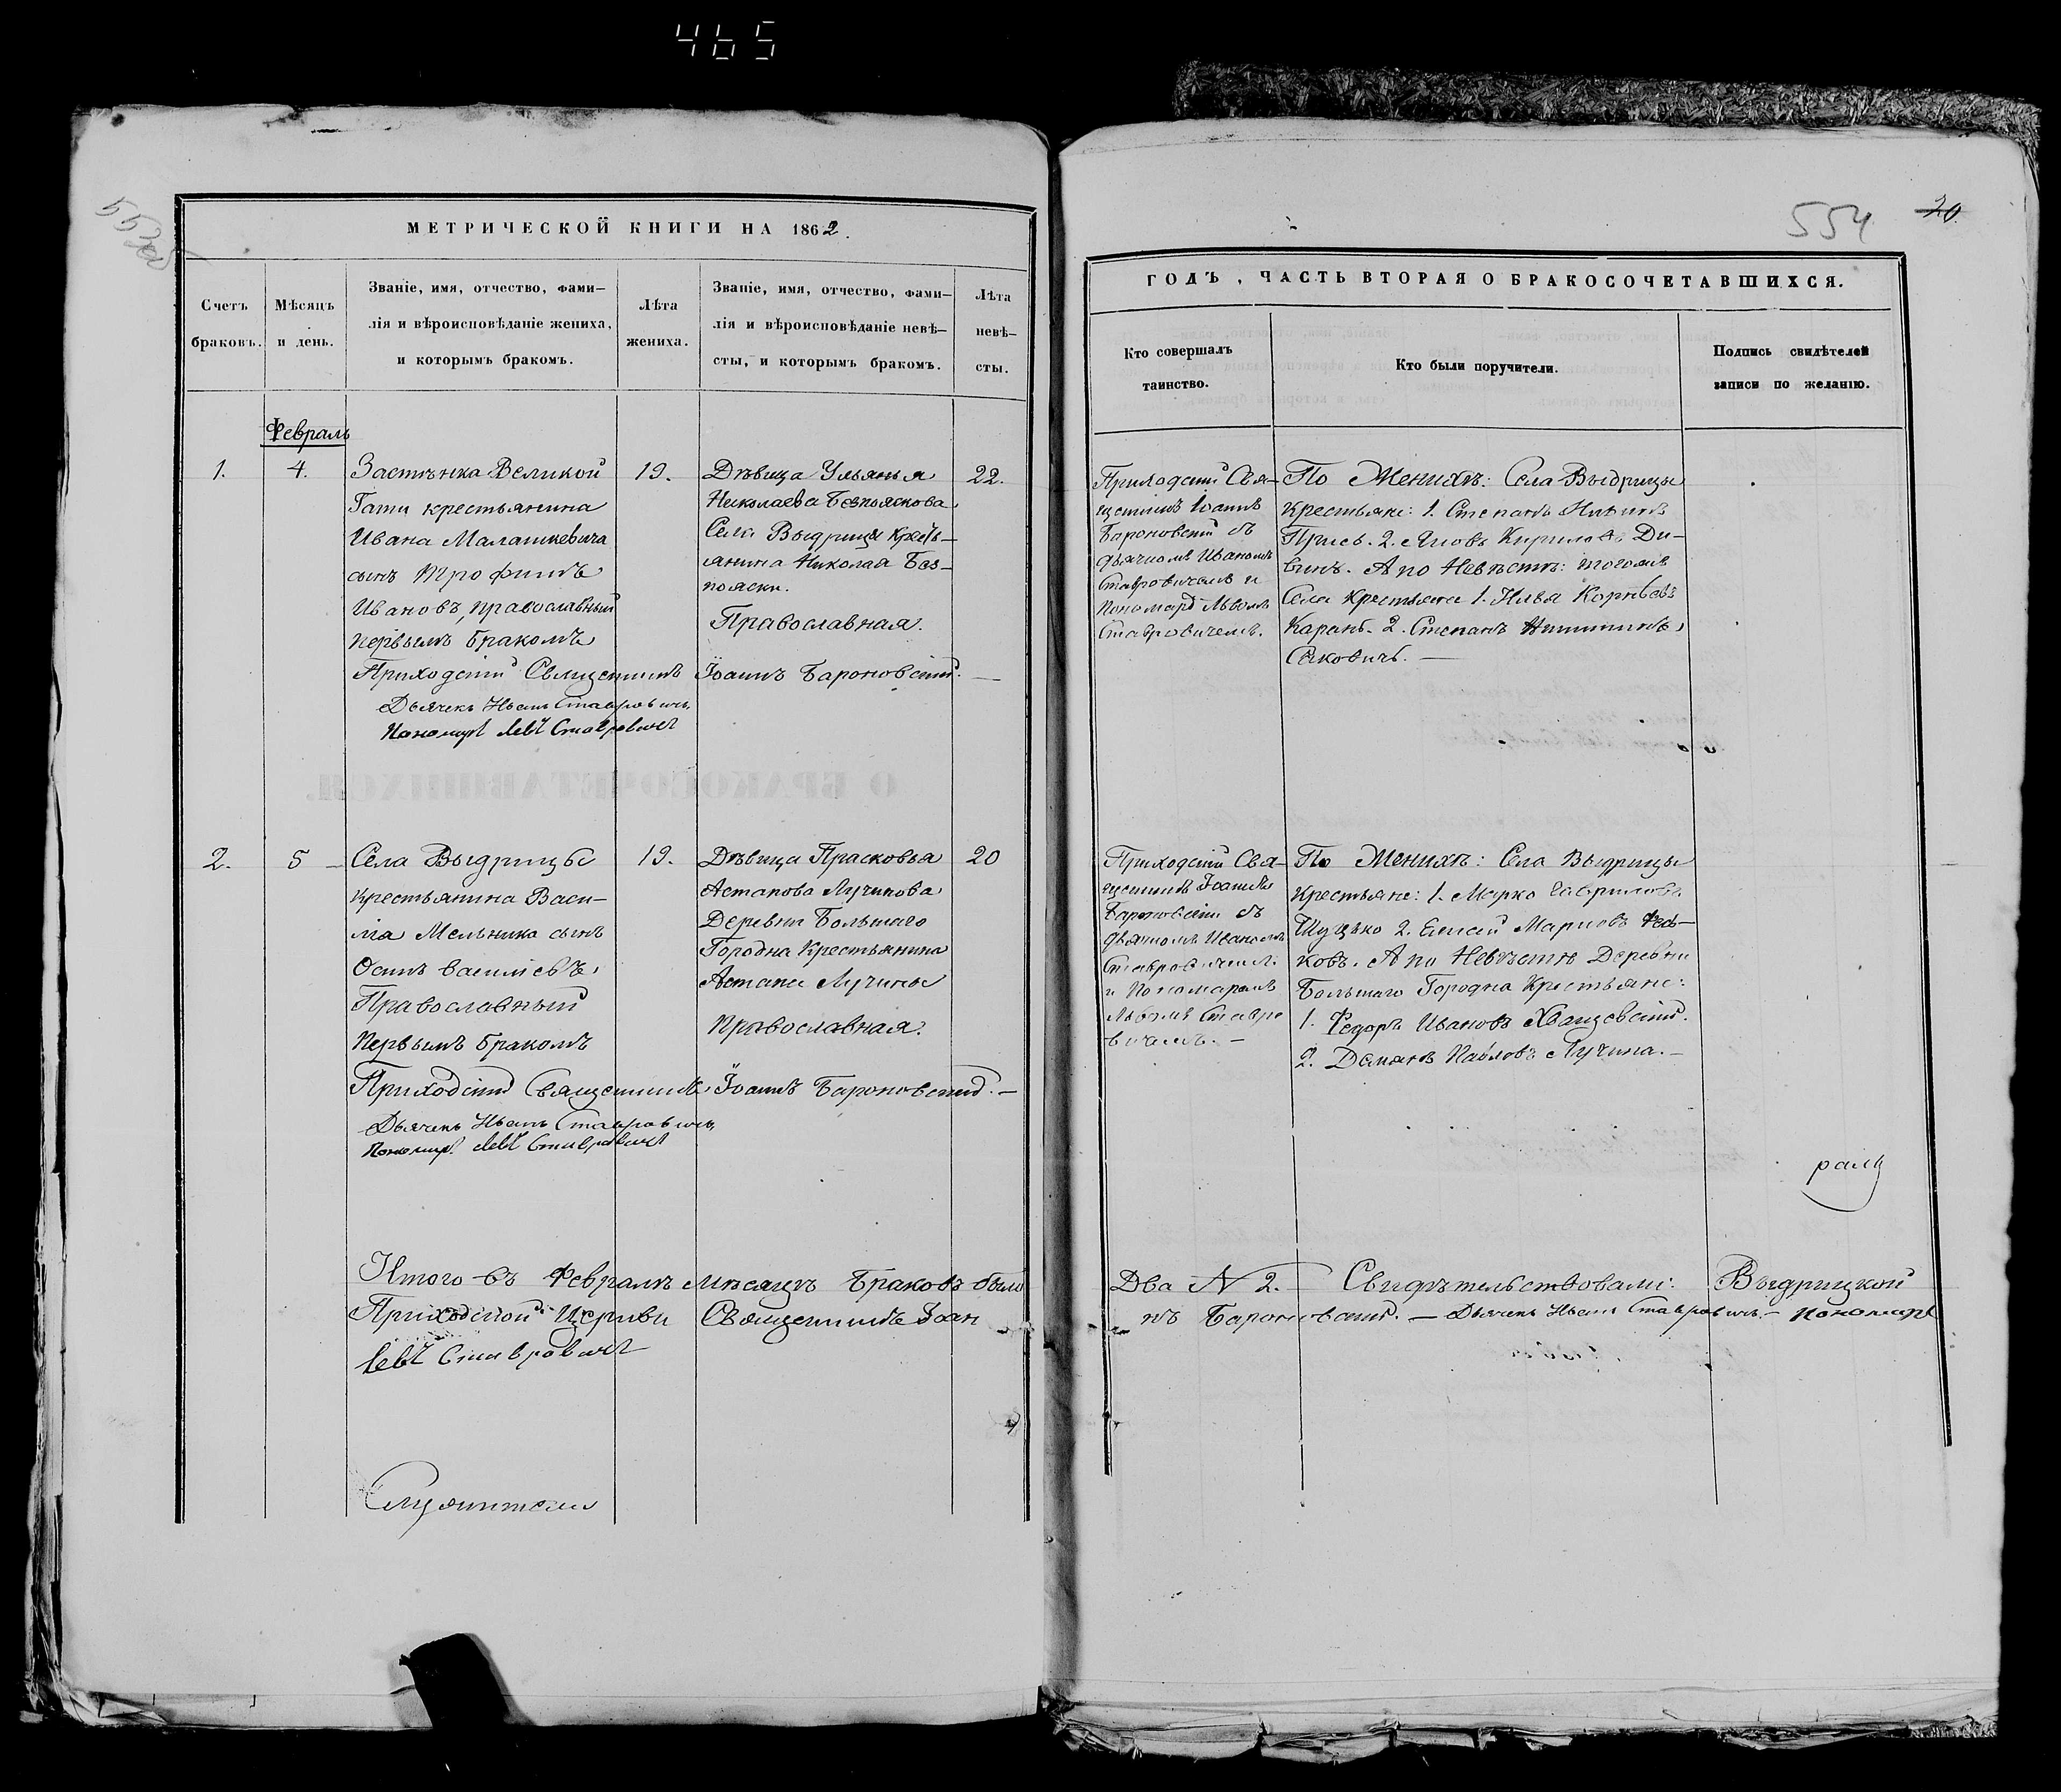 465
МЕТРИЧЕСКОЙ КНИГИ НА 1862.
Счетъ браковъ.
Мѣсяцъ и день.
Званіе, имя, отчество, фами-
лія и вѣроисповѣданіе жениха,
и которымъ бракомъ.
Лѣта
жениха.
Званіе, имя, отчество, фами-
лія и вѣроисповѣданіе невѣ-
сты, и которымъ бракомъ.
Лѣта
невѣ-
сты.
Февраль
1.
4.
Застѣнка Великой
Гати крестьянина
Ивана Малашкевича
сынъ Трофимъ
Ивановъ, православный
первымъ бракомъ
19.
Дѣвица Ульянья
Николаева Безпояскова
Села Выдрицы Кресть-
янина Николая Без-
пояски.
Православная.
22.
Приходскій Священникъ Іоаннъ Бароновскій.
Дьячекъ Иванъ Ставровичъ.
Пономарь Левъ Ставровичъ
2.
5
Села Выдрицы
крестьянина Васи-
лія Мельника сынъ
Осипъ Василіевъ,
Православный
первымъ бракомъ
19.
Дѣвица Прасковья
Астапова Лучинова
Деревни Большаго
Городна Крестьянина
Астапа Лучины
Православная.
20
Приходскій Священникъ Іоаннъ Бароновскій.
Дьячекъ Иванъ Ставровичъ,
Пономарь Левъ Ставровичъ
Итого въ Февралѣ мѣсяцѣ браковъ было
Приходской Церкви Священникъ Іоан
Левъ Ставровичъ
554
20.
ГОДЪ, ЧАСТЬ ВТОРАЯ О БРАКОСОЧЕТАВШИХСЯ.
Кто совершалъ
таинство.
Кто были поручители.
Подпись свидѣтелей
записи по желанію.
Приходскій Свя-
щенникъ Іоаннъ
Бароновскій съ
дьячкомъ Иваномъ
Ставровичемъ и
Пономаремъ Львомъ
Ставровичемъ.
По Женихѣ: Села Выдрицы
Крестьяне: 1. Степанъ
2. Яковъ Кириловъ
А по Невѣстѣ: тогоже
Села Крестьяне 1. Илья
2. Степанъ
Приходскій Свя-
щенникъ Іоаннъ
Бароновскій съ
дьячкомъ Иваномъ
Ставровичемъ
и Пономаремъ
Львомъ Ставро
вичемъ.
По Женихѣ: Села Выдрицы
Крестьяне: 1. Марко Гавриловъ
2. Елисей Марковъ
А по Невѣстѣ Деревни
Большаго Городна Крестьяне:
1. Федоръ Ивановъ
2. Демьянъ Павловъ Лучина.
Два N 2. Свидѣтельствовали: Выдрицкой
нъ Бароновскій. — Дьячекъ Иванъ Ставровичъ. — Пономарь